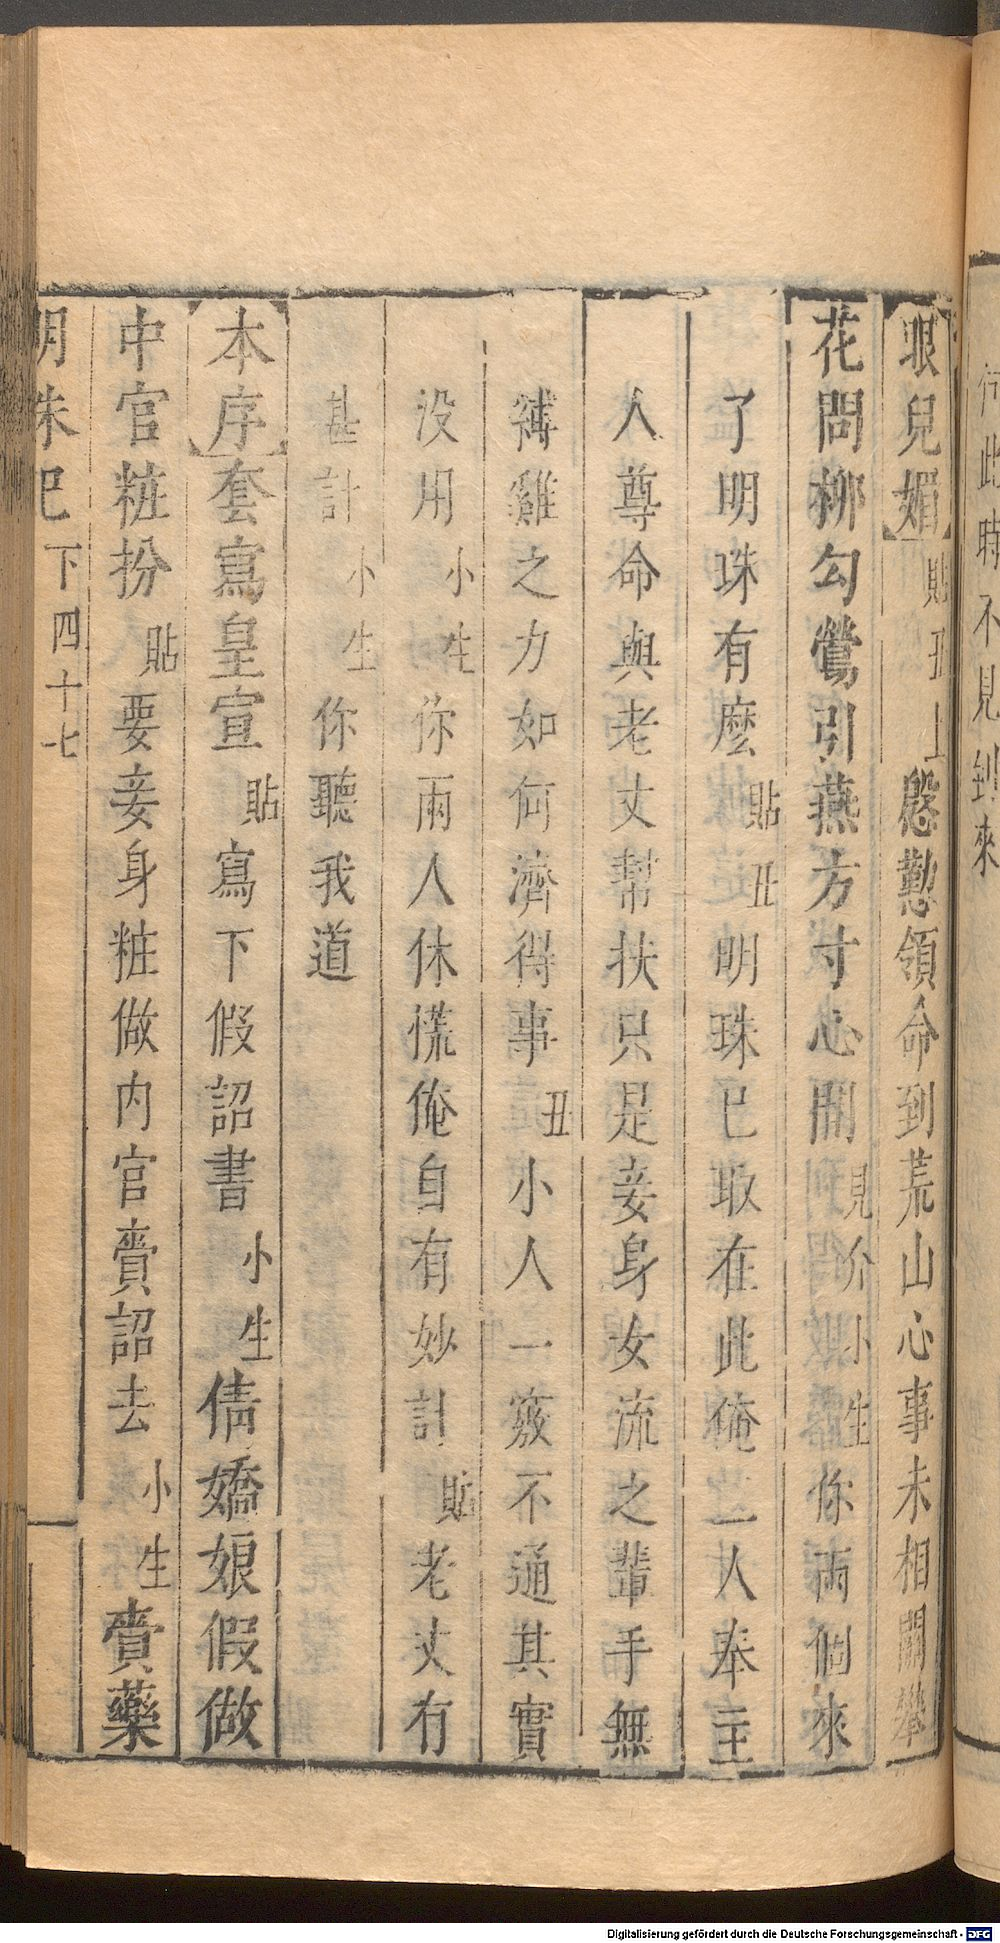 行此時不見到來
眼兒媚貼丑上慇懃領命到荒山心事未相關攀
花問柳勾鶯引燕方寸心閒見介小生你兩個來
了明珠有麽貼丑明珠已取在此俺二人奉主
人尊命與老丈幫扶只是妾身女流之輩手無
縛雞之力如何濟得事丑小人一竅不通其實
没用小生你兩人休慌俺自有妙計貼老丈有
甚計小生你聽我道
本序套寫皇宣貼寫下假詔書小生倩嬌娘假做
中官粧扮貼要妾身粧做内官賫詔去小生賫藥
明珠記下四十七
Digitalisierung gefördert durch die Deutsche Forschungsgemeinschaft - DFG